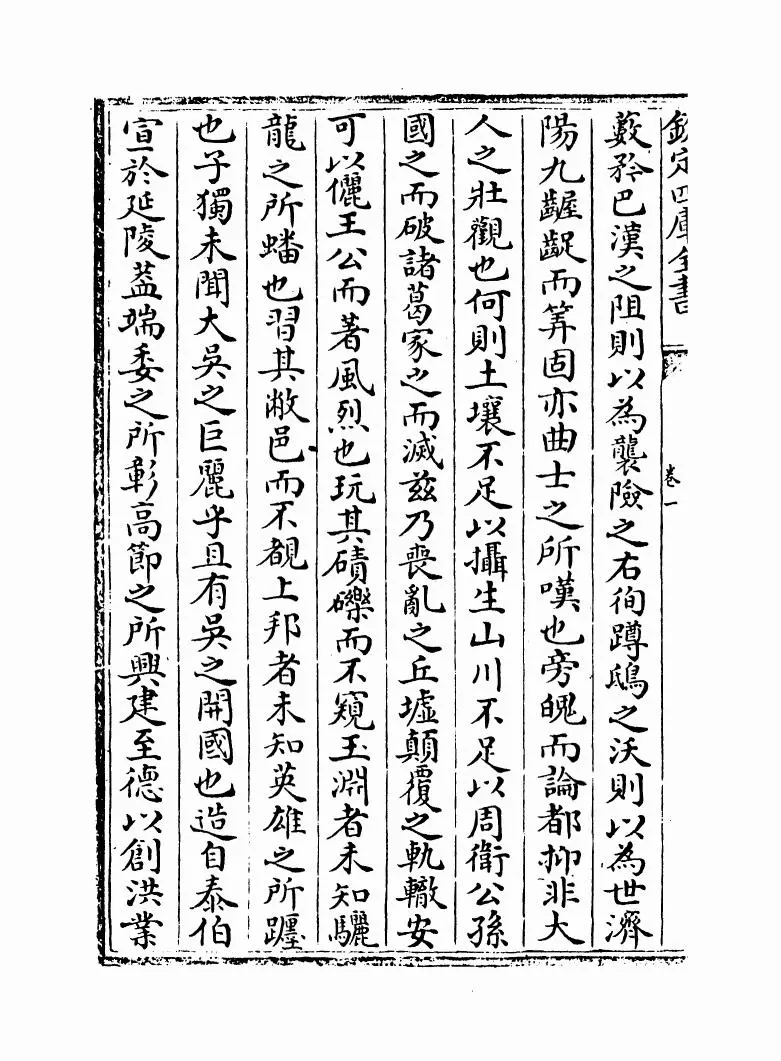 欽定四庫全書
卷一
藪矜巴漢之阻則以為襲險之右徇蹲鴟之沃則以為世濟
陽九齷齪而筭固亦曲士之所嘆也旁魄而論都抑非大
人之壯觀也何則土壤不足以攝生山川不足以周衛公孫
國之而破諸葛家之而滅茲乃喪亂之丘墟顛覆之軌轍安
可以儷王公而著風烈也玩其磧礫而不窺玉淵者未知驪
龍之所蟠也習其敝邑而不覩上邦者未知英雄之所躔
也子獨未聞大吳之巨麗乎且有吳之開國也造自泰伯
宣於延陵蓋端委之所彰高節之所興建至德以創洪業